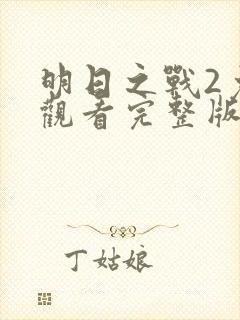 明日之戰2
觀看完整版
丁姑娘